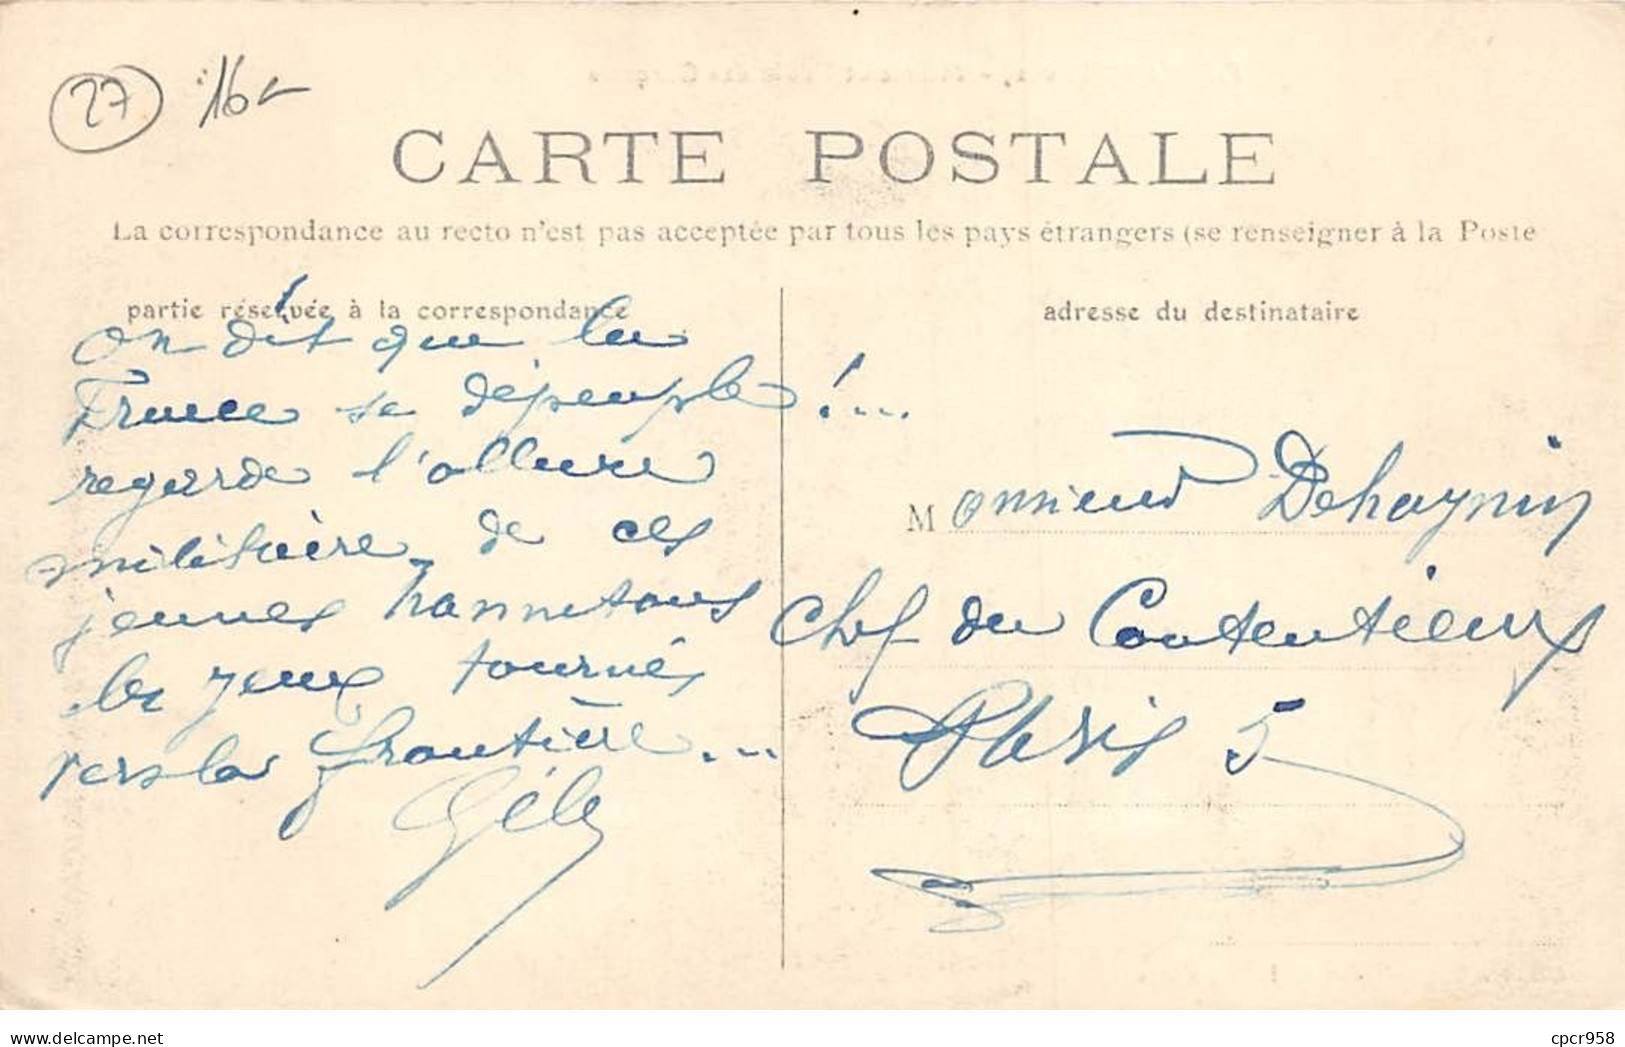 27 16
CARTE POSTALE
La correspondance au recto n'est pas acceptée par tous les pays étrangers (se renseigner à la Poste
partie réservée à la correspondance
On dit que la
France se dépeuple !...
regarde l'allure
militaire de ces
jeunes hannetons
les yeux tournés
vers la frontière...
Gély
adresse du destinataire
Monsieur Dehaynin
Chef du Contentieux
Paris 5
delcampe.net
cpcr958